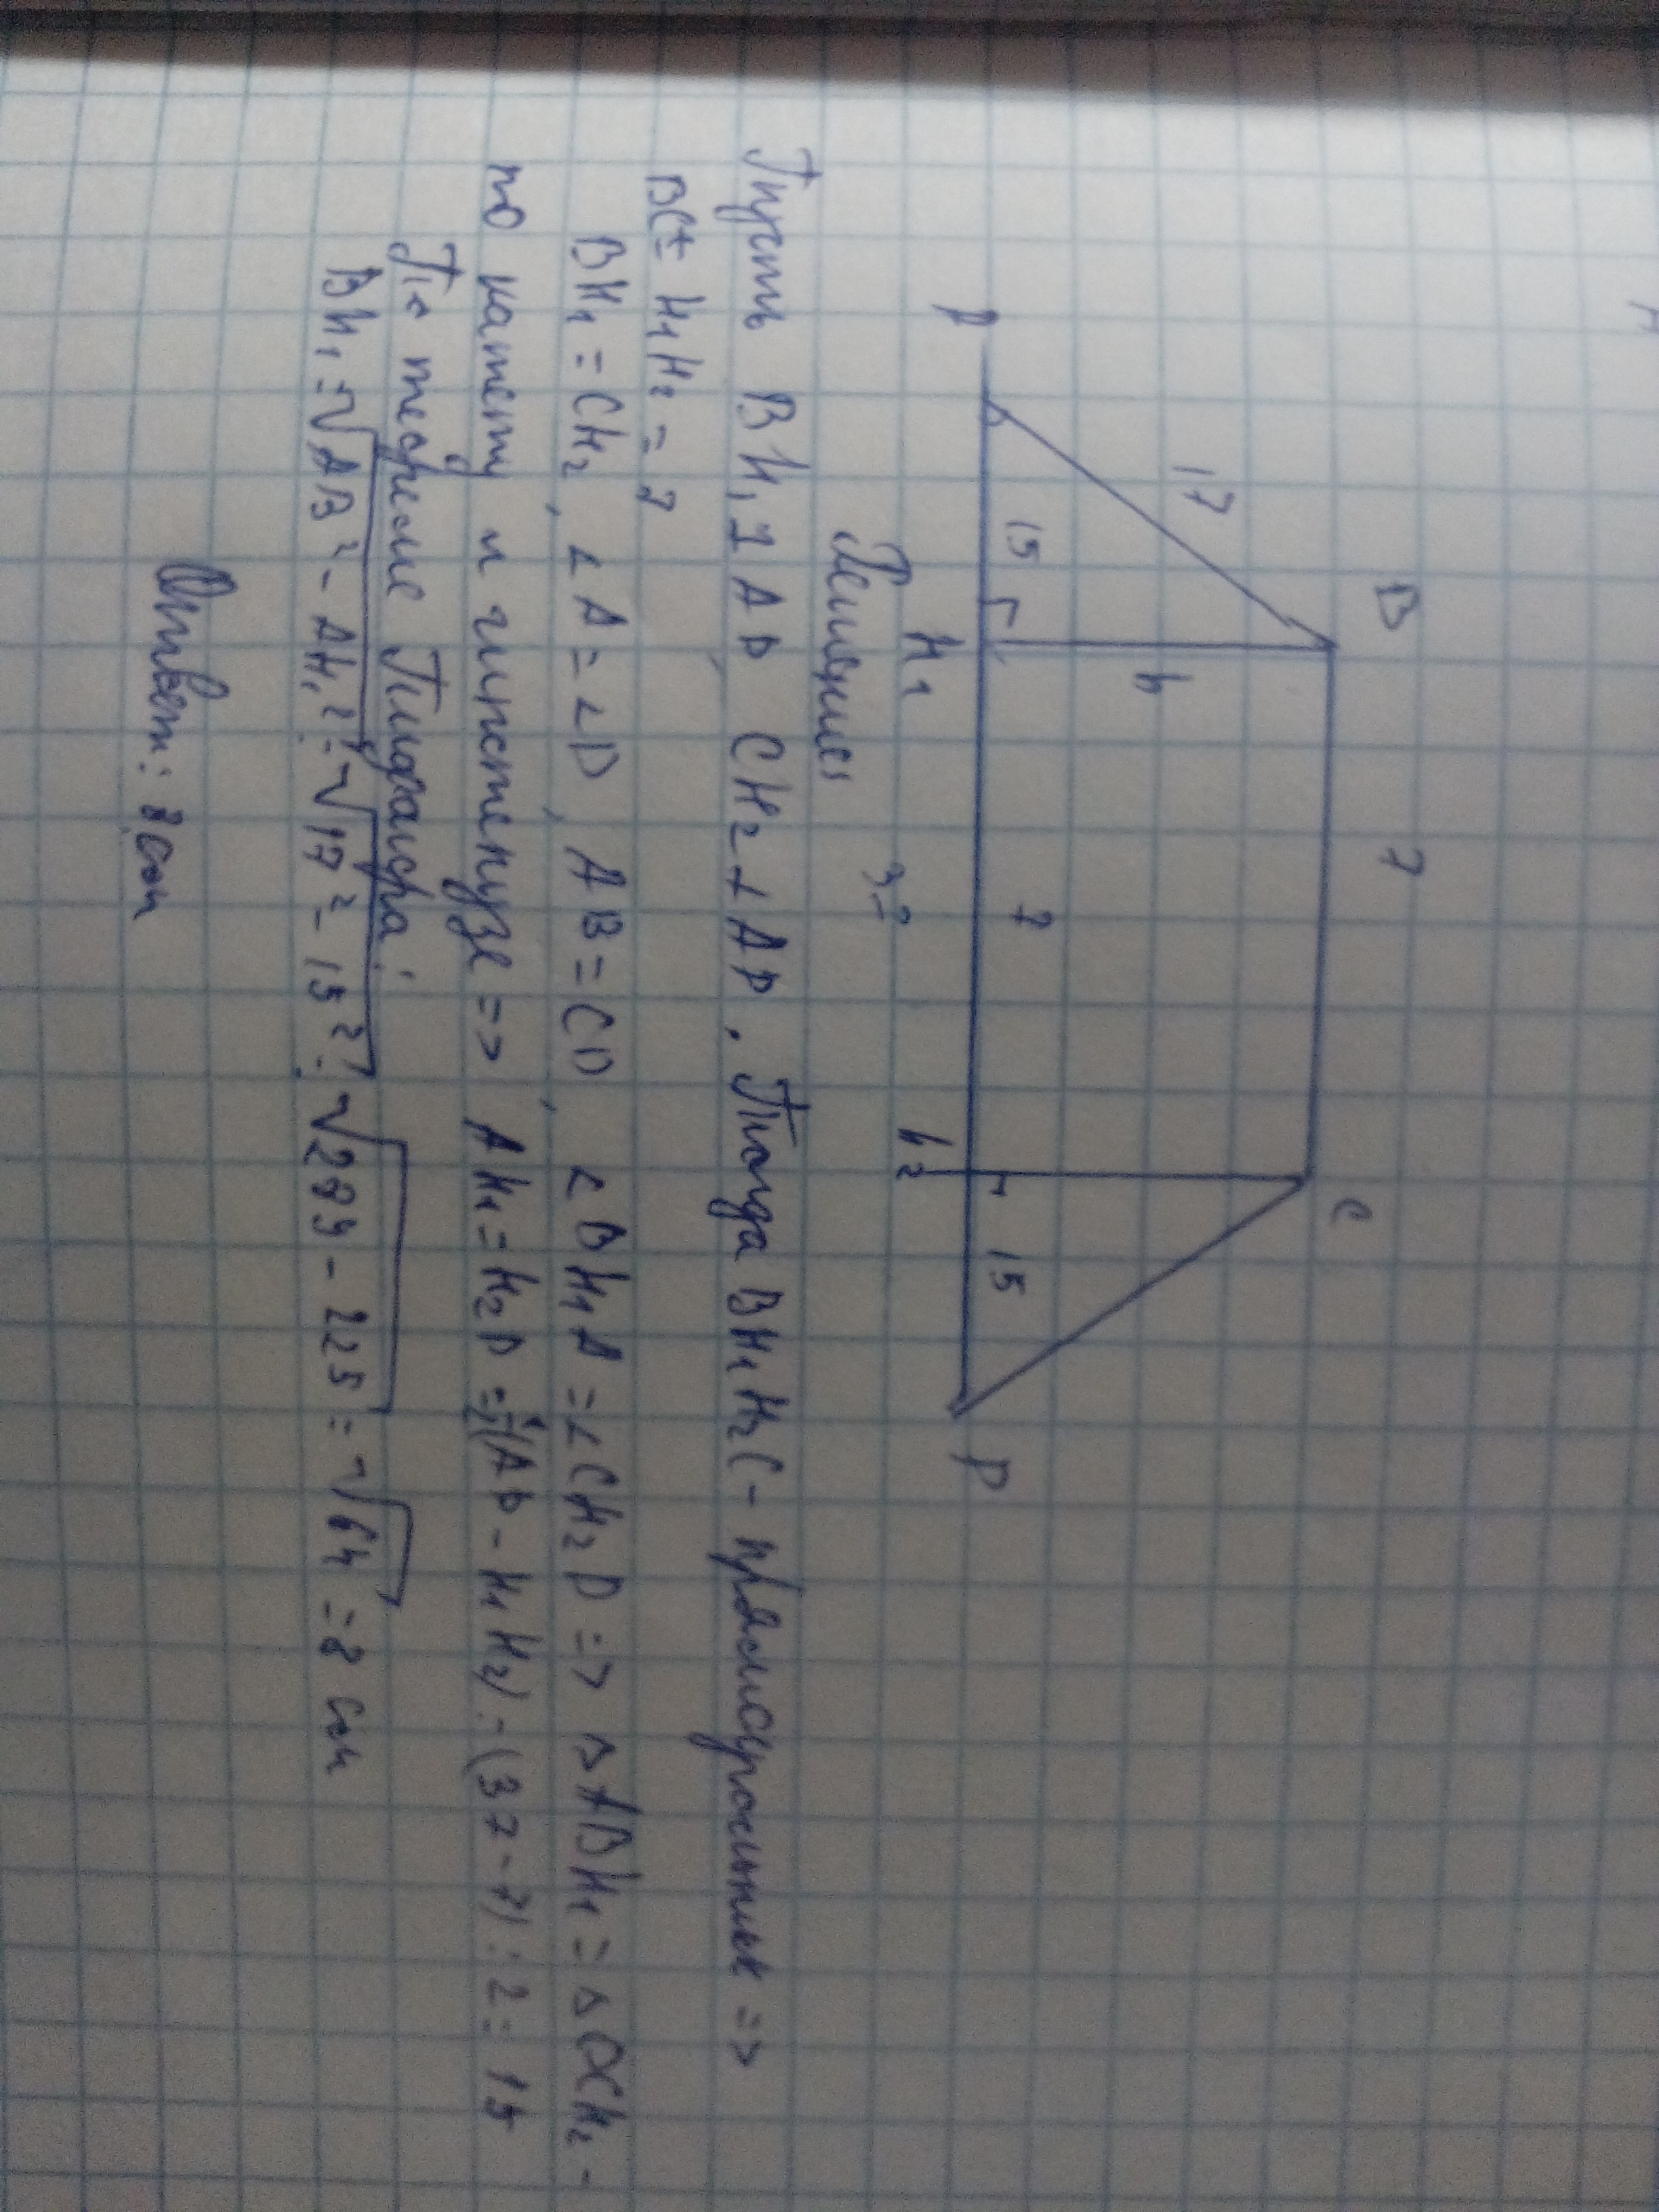 B
7
C
17
h
15
7
15
H₁
37
h₂
D
Решение
Пусть BH₁ ⊥ AD CH₂ ⊥ AD. Тогда BH₁H₂C - прямоугольник =>
BC = H₁H₂ = 7
BH₁ = CH₂, ∠A = ∠D, AB = CD, ∠BH₁A = ∠CH₂D => ΔABH₁ = ΔDCH₂ -
по катету и гипотенузе => AH₁ = H₂D = ½(AD - H₁H₂) = (37-7) : 2 = 15
По теореме Пифагора:
BH₁ = √AB² - AH₁² = √17² - 15² = √289 - 225 = √64 = 8 см
Ответ: 8 см